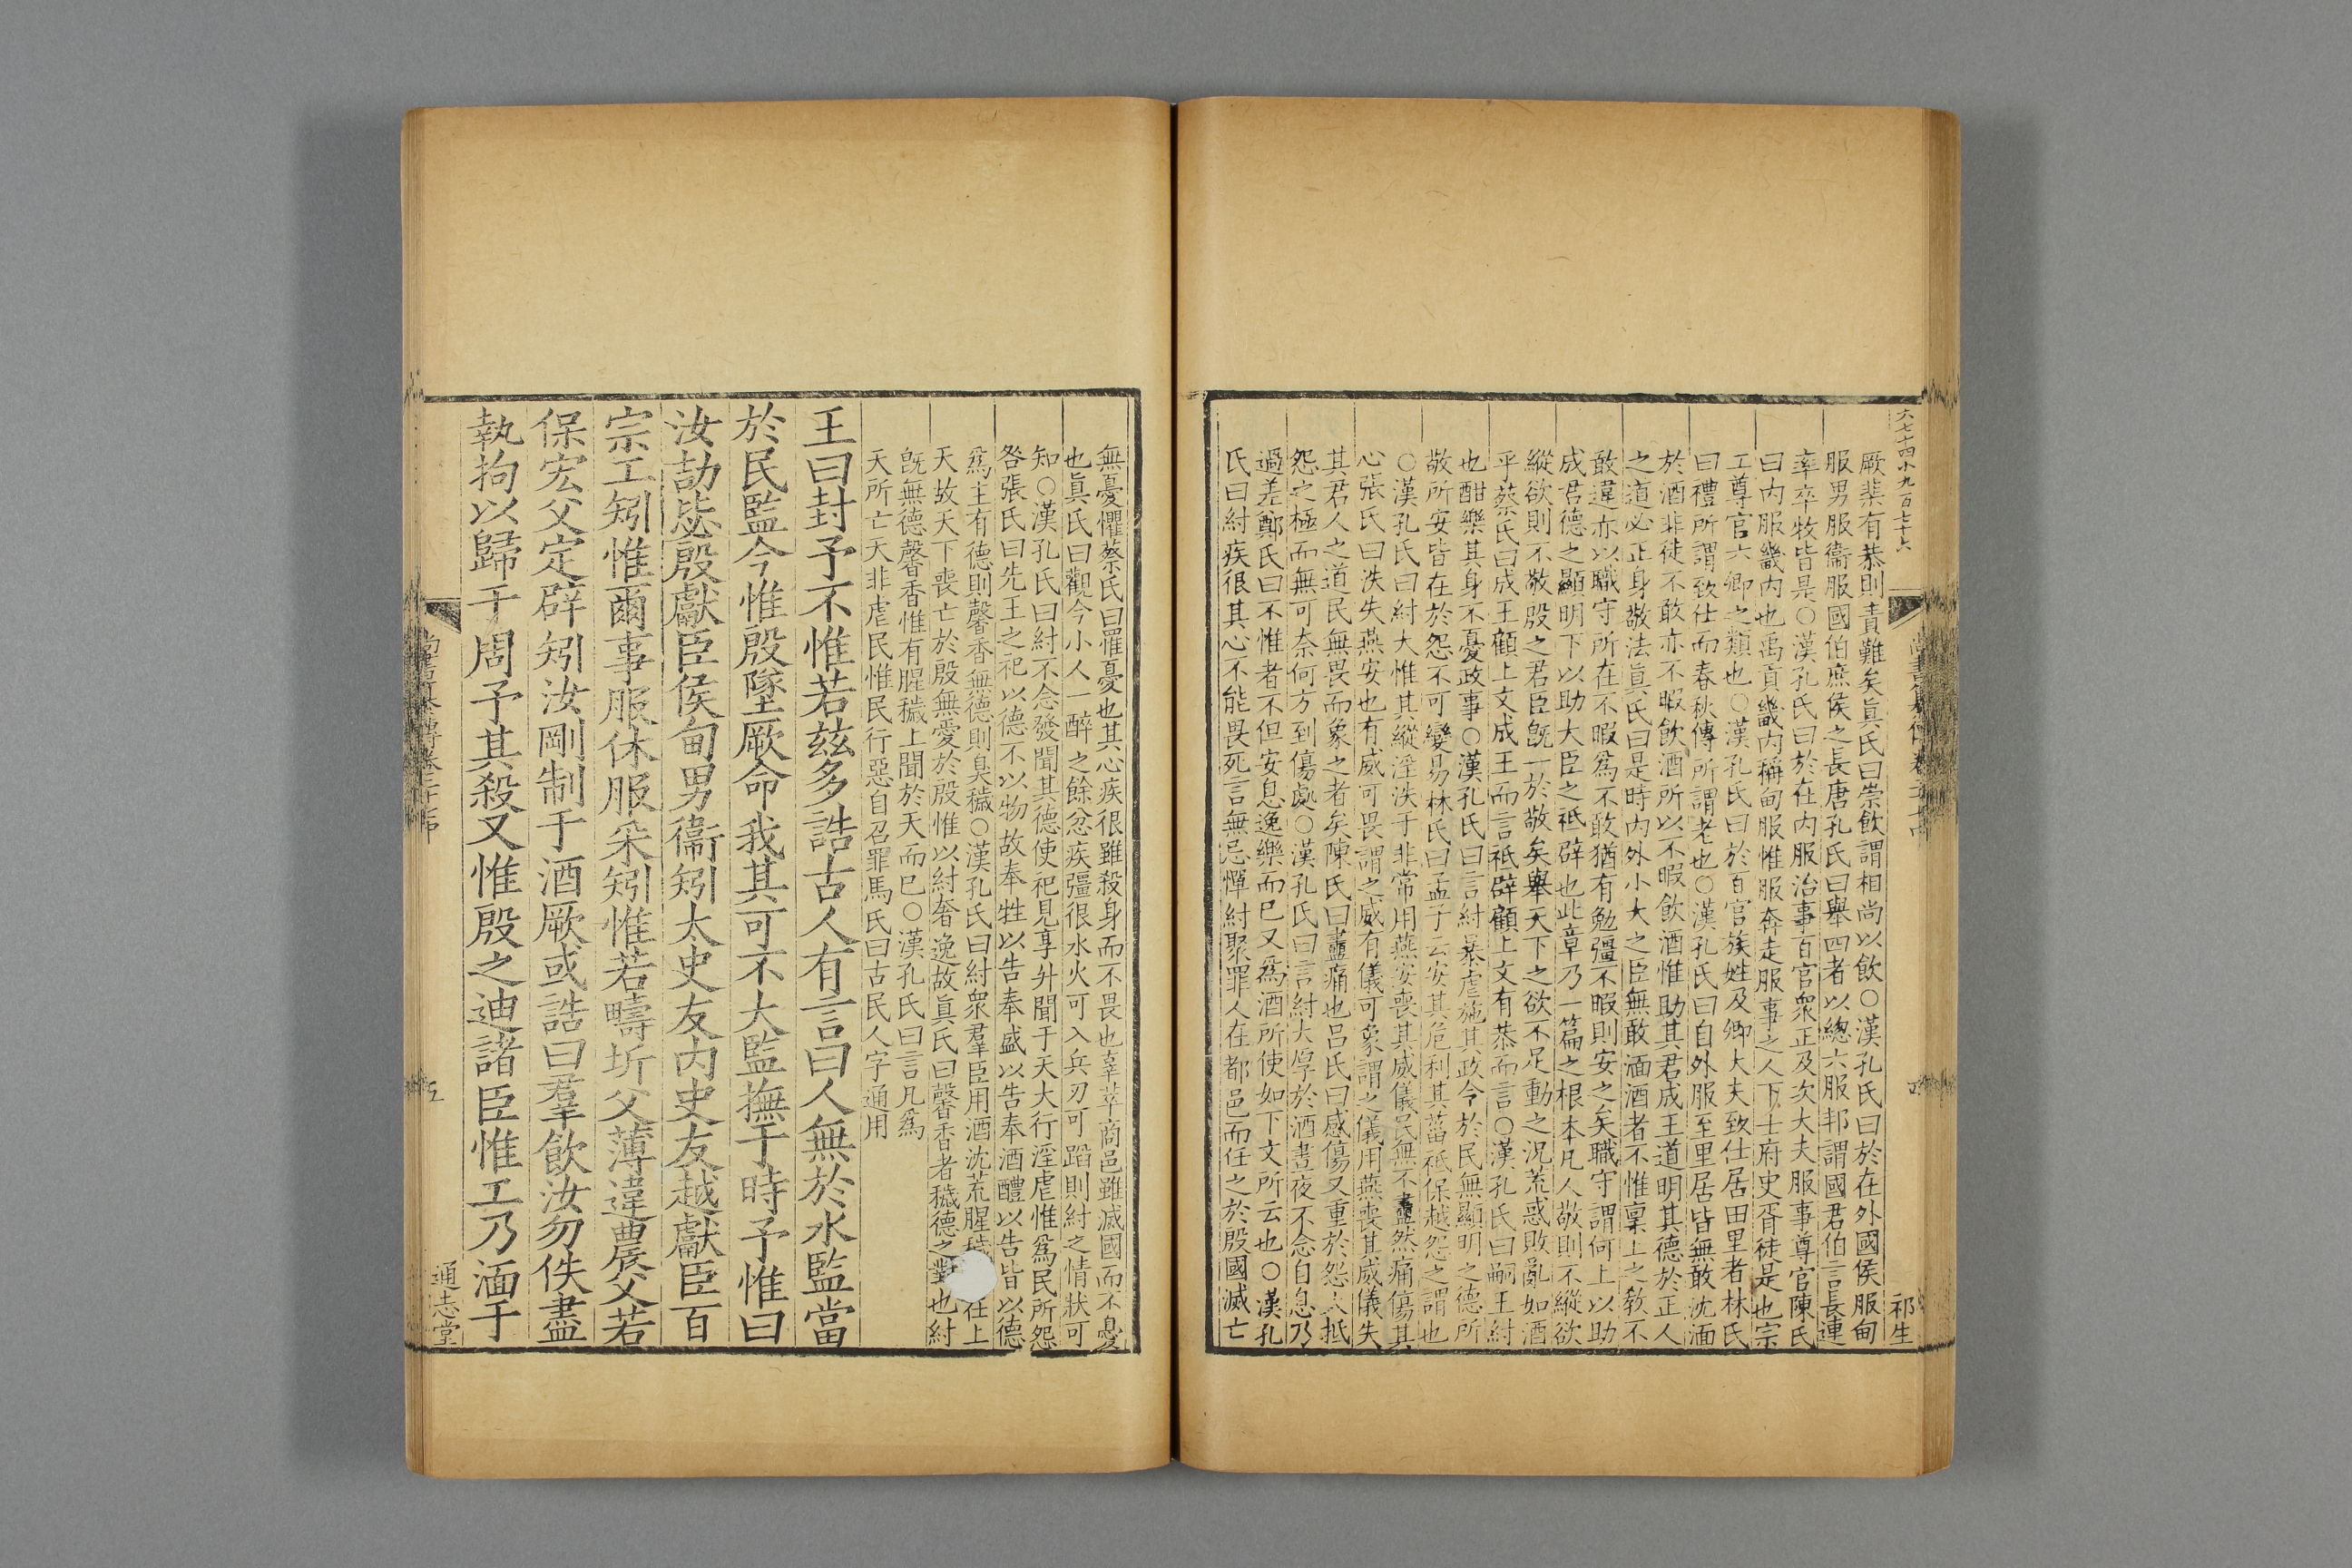 六七十四小九百七十六
祁生
厥棐有恭則責難矣眞氏曰崇飮謂相尚以飮○漢孔氏曰於在外國侯服甸
服男服衞服國伯庶侯之長唐孔氏曰舉四者以總六服邦謂國君伯言長連
率卒牧皆是○漢孔氏曰於在内服治事百官衆正及次大夫服事尊官陳氏
曰内服畿内也禹貢畿内稱甸服惟服奔走服事之人下士府史胥徒是也宗
工尊官六卿之類也○漢孔氏曰於百官族姓及卿大夫致仕居田里者林氏
曰禮所謂致仕而春秋傳所謂老也○漢孔氏曰自外服至里居皆無敢沈湎
於酒非徒不敢亦不暇飮酒所以不暇飮酒惟助其君成王道明其德於正人
之道必正身敬法眞氏曰是時内外小大之臣無敢湎酒者不惟稟上之敎不
敢違亦以職守所在不暇爲不敢猶有勉彊不暇則安之矣職守謂何上以助
成君德之顯明下以助大臣之祗辟也此章乃一篇之根本凡人敬則不縱欲
縱欲則不敬殷之君臣旣一於敬矣舉天下之欲不足動之況荒惑敗亂如酒
乎蔡氏曰成王顧上文成王而言祗辟顧上文有恭而言○漢孔氏曰嗣王紂
也酣樂其身不憂政事○漢孔氏曰言紂暴虐施其政令於民無顯明之德所
敬所安皆在於怨不可變易林氏曰孟子云安其危利其菑祗保越怨之謂也
○漢孔氏曰紂大惟其縱淫泆于非常用燕安喪其威儀民無不盡然痛傷其
心張氏曰泆失燕安也有威可畏謂之威有儀可象謂之儀用燕喪其威儀失
其君人之道民無畏而象之者矣陳氏曰衋痛也呂氏曰感傷又重於怨大抵
怨之極而無可奈何方到傷處○漢孔氏曰言紂大厚於酒晝夜不念自息乃
過差鄭氏曰不惟者不但安息逸樂而已又爲酒所使如下文所云也○漢孔
氏曰紂疾很其心不能畏死言無忌憚紂聚罪人在都邑而任之於殷國滅亡
無憂懼蔡氏曰罹憂也其心疾很雖殺身而不畏也辜萃商邑雖滅國而不憂
也眞氏曰觀今小人一醉之餘忿疾彊很水火可入兵刃可蹈則紂之情狀可
知○漢孔氏曰紂不念發聞其德使祀見享升聞于天大行淫虐惟爲民所怨
咎張氏曰先王之祀以德不以物故奉牲以告奉盛以告奉酒醴以告皆以德
爲主有德則馨香無德則臭穢○漢孔氏曰紂衆羣臣用酒沈荒腥穢在上
天故天下喪亡於殷無愛於殷惟以紂奢逸故眞氏曰馨香者穢德之對也紂
旣無德馨香惟有腥穢上聞於天而已○漢孔氏曰言凡爲
天所亡天非虐民惟民行惡自召罪馬氏曰古民人字通用
王曰封予不惟若茲多誥古人有言曰人無於水監當
於民監今惟殷墜厥命我其可不大監撫于時予惟曰
汝劼毖殷獻臣侯甸男衞矧太史友内史友越獻臣百
宗工矧惟爾事服休服采矧惟若疇圻父薄違農父若
保宏父定辟矧汝剛制于酒厥或誥曰羣飮汝勿佚盡
執拘以歸于周予其殺又惟殷之迪諸臣惟工乃湎于
五
通志堂